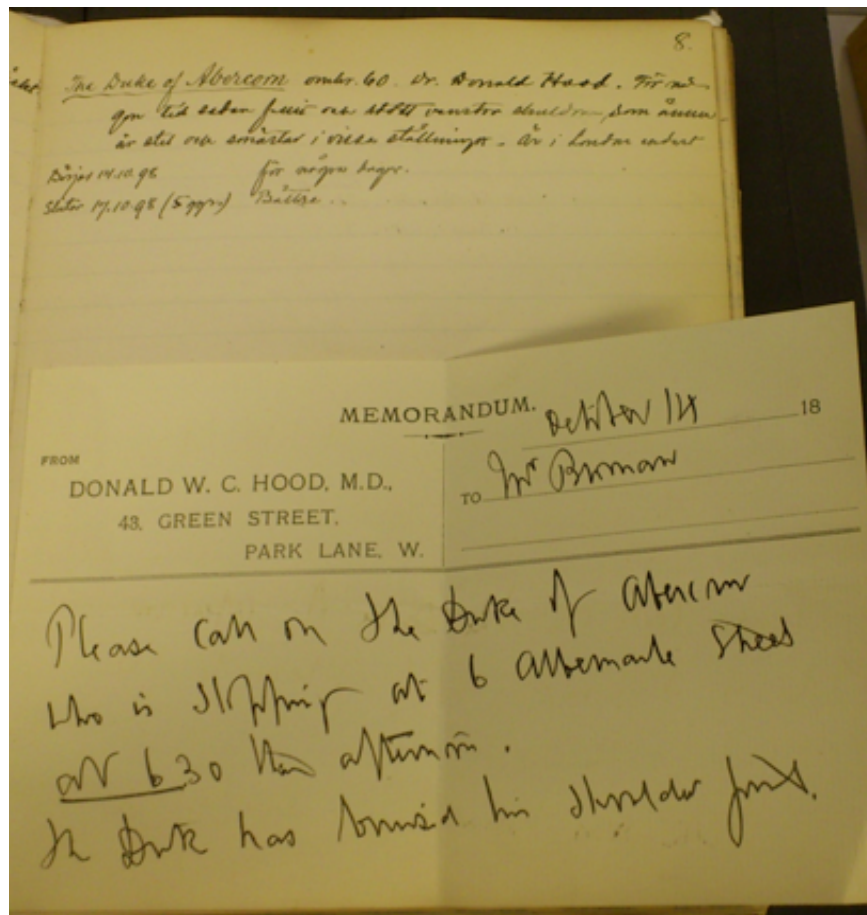 8.
The Duke of Abercorn omkr. 60. Dr. Donald Hood. För nå-
gon tid sedan och stött venstra skuldran, som ännu
är stel och smärtar i vissa ställningar. Är i London endast
för några dagar.
Börjat 14.10.98
Slutar 17.10.98 (5 ggr) Bättre..
MEMORANDUM.
October 14 18
FROM
DONALD W. C. HOOD, M.D.,
43, GREEN STREET,
PARK LANE, W.
TO Mr Broman
Please call on the Duke of Abercorn
who is stopping at 6 Albemarle Street
at 6 30 this afternoon.
The Duke has bruised his shoulder joint.